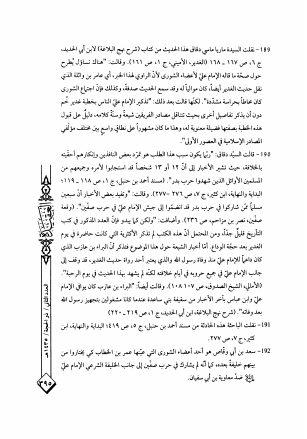 ١٨٩- نقلت السيدة ماريا ماسي دقاق هذا الحديث من كتاب (شرح نهج البلاغة) لابن أبي الحديد،
ج ٦، ص ١٦٧ ـ ١٦٨ (الغدير، الأميني، ج ١، ص ١٦١). وقالت: "هناك تساؤل يُطرح
حول صحّة ما قاله الإمام عليّ لأعضاء الشورى لأنّ الراوي لهذا الخبر، أي عامر بن واثلة الذي
نقل حديث الغدير أيضاً، كان موالياً له وقد سمع الحديث صدفةً، وكذلك فإنّ اجتماع الشورى
كان محاطاً بحراسة مشدّدة". لكنّها قالت بعد ذلك: "تذكير الإمام عليّ الناس بخطبة غدير خم
دون أن يذكر تفاصيل أخرى بحيث تتناقل مصادر الفريقين شيعةً وسنّةً كلامه، دليلٌ على قبول
هذه الخطبة بصفتها فضيلة معنوية له، وهذا ما كان مشهوراً على نطاق واسع بين مختلف مؤلّفي
المصادر الإسلامية في العصور الأولى".
١٩٠- قالت السيّد دقاق: "ربّما يكون سبب هذا الطلب هو تمرّد بعض النافذين وإنكارهم أحقّيته
بالخلافة، حيث تشير الأخبار إلى أنّ ١٢ أو ١٣ شخصاً قد استجابوا لأمره وجميعهم من
المسلمين الأوائل الذين شهدوا حرب بدر". (مسند أحمد بن حنبل، ج ١، ص ١١٨ ـ ١١٩؛
البداية والنهاية، ابن كثير، ج ٧، ص ٢٧٦ ـ ٢٧٧). وقالت: "وتفيد بعض الأخبار أنّ سبعين
مسلماً ممّن شاركوا في حرب بدر قد انضمّوا إلى جيش الإمام عليّ في حرب صفّين". (وقعة
صفّين، نصر بن مزاحم، ص ٢٣٦). وأضافت: "ولكن كما يبدو فإنّ العدد المذكور في كتب
التأريخ قليلٌ جدّاً، ومن المحتمل أنّ هذه الكتب لم تذكر الأكثرية التي كانت حاضرة في يوم
الغدير بعد حجّة الوداع. أمّا أخبار الشيعة حول هذا الموضوع فتذكر أنّ البراء بن عازب الذي
كان داعياً للإمام عليّ منذ وفاة رسول الله والذي يعتبر أحد رواة حديث الغدير، قد وقف إلى
جانب الإمام عليّ في جميع حروبه في أيام خلافته لكنّه لم يشهد بهذا الحديث في يوم الرحبة".
(الأمالي، الشيخ الصدوق، ص ١٠٧ ١٠٨). وقالت أيضاً: "البراء بن عازب كان يوافي الإمام
عليّ وابن عباس بآخر الأخبار من سقيفة بني ساعدة عندما كانا مشغولين بتجهيز رسول الله
بعد وفاته". (شرح نهج البلاغة، ابن أبي الحديد، ج ١، ص ٢١٩ ـ ٢٢٠)
١٩١- نقلت الباحثة هذه الحادثة من مسند أحمد بن حنبل، ج ٥، ص ٤١٩؛ البداية والنهاية، ابن
كثير، ج ٧، ص ٢٧٧.
١٩٢- سعد بن أبي وقّاص هو أحد أعضاء الشورى التي عيّنها عمر بن الخطاب كي يختاروا من
بينهم خليفةً بعده، كما أنّه لم يشارك في حرب صفّين إلى جانب الخليفة الشرعي الإمام عليّ
ضدّ معاوية بن أبي سفيان.
العدد الثاني / ذو الحجة / ١٤٣٥هـ
٣٩٥